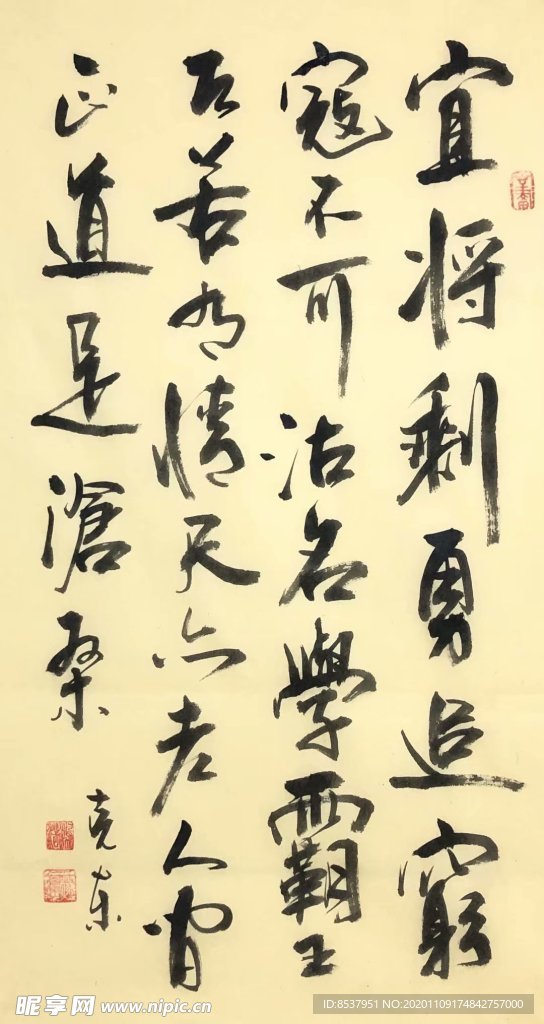 宜将剩勇追窮
寇不可沽名學霸王
天若有情天亦老人間
正道是滄桑
克东
昵享网 www.nipic.cn
ID:8537951 NO:20201109174842757000